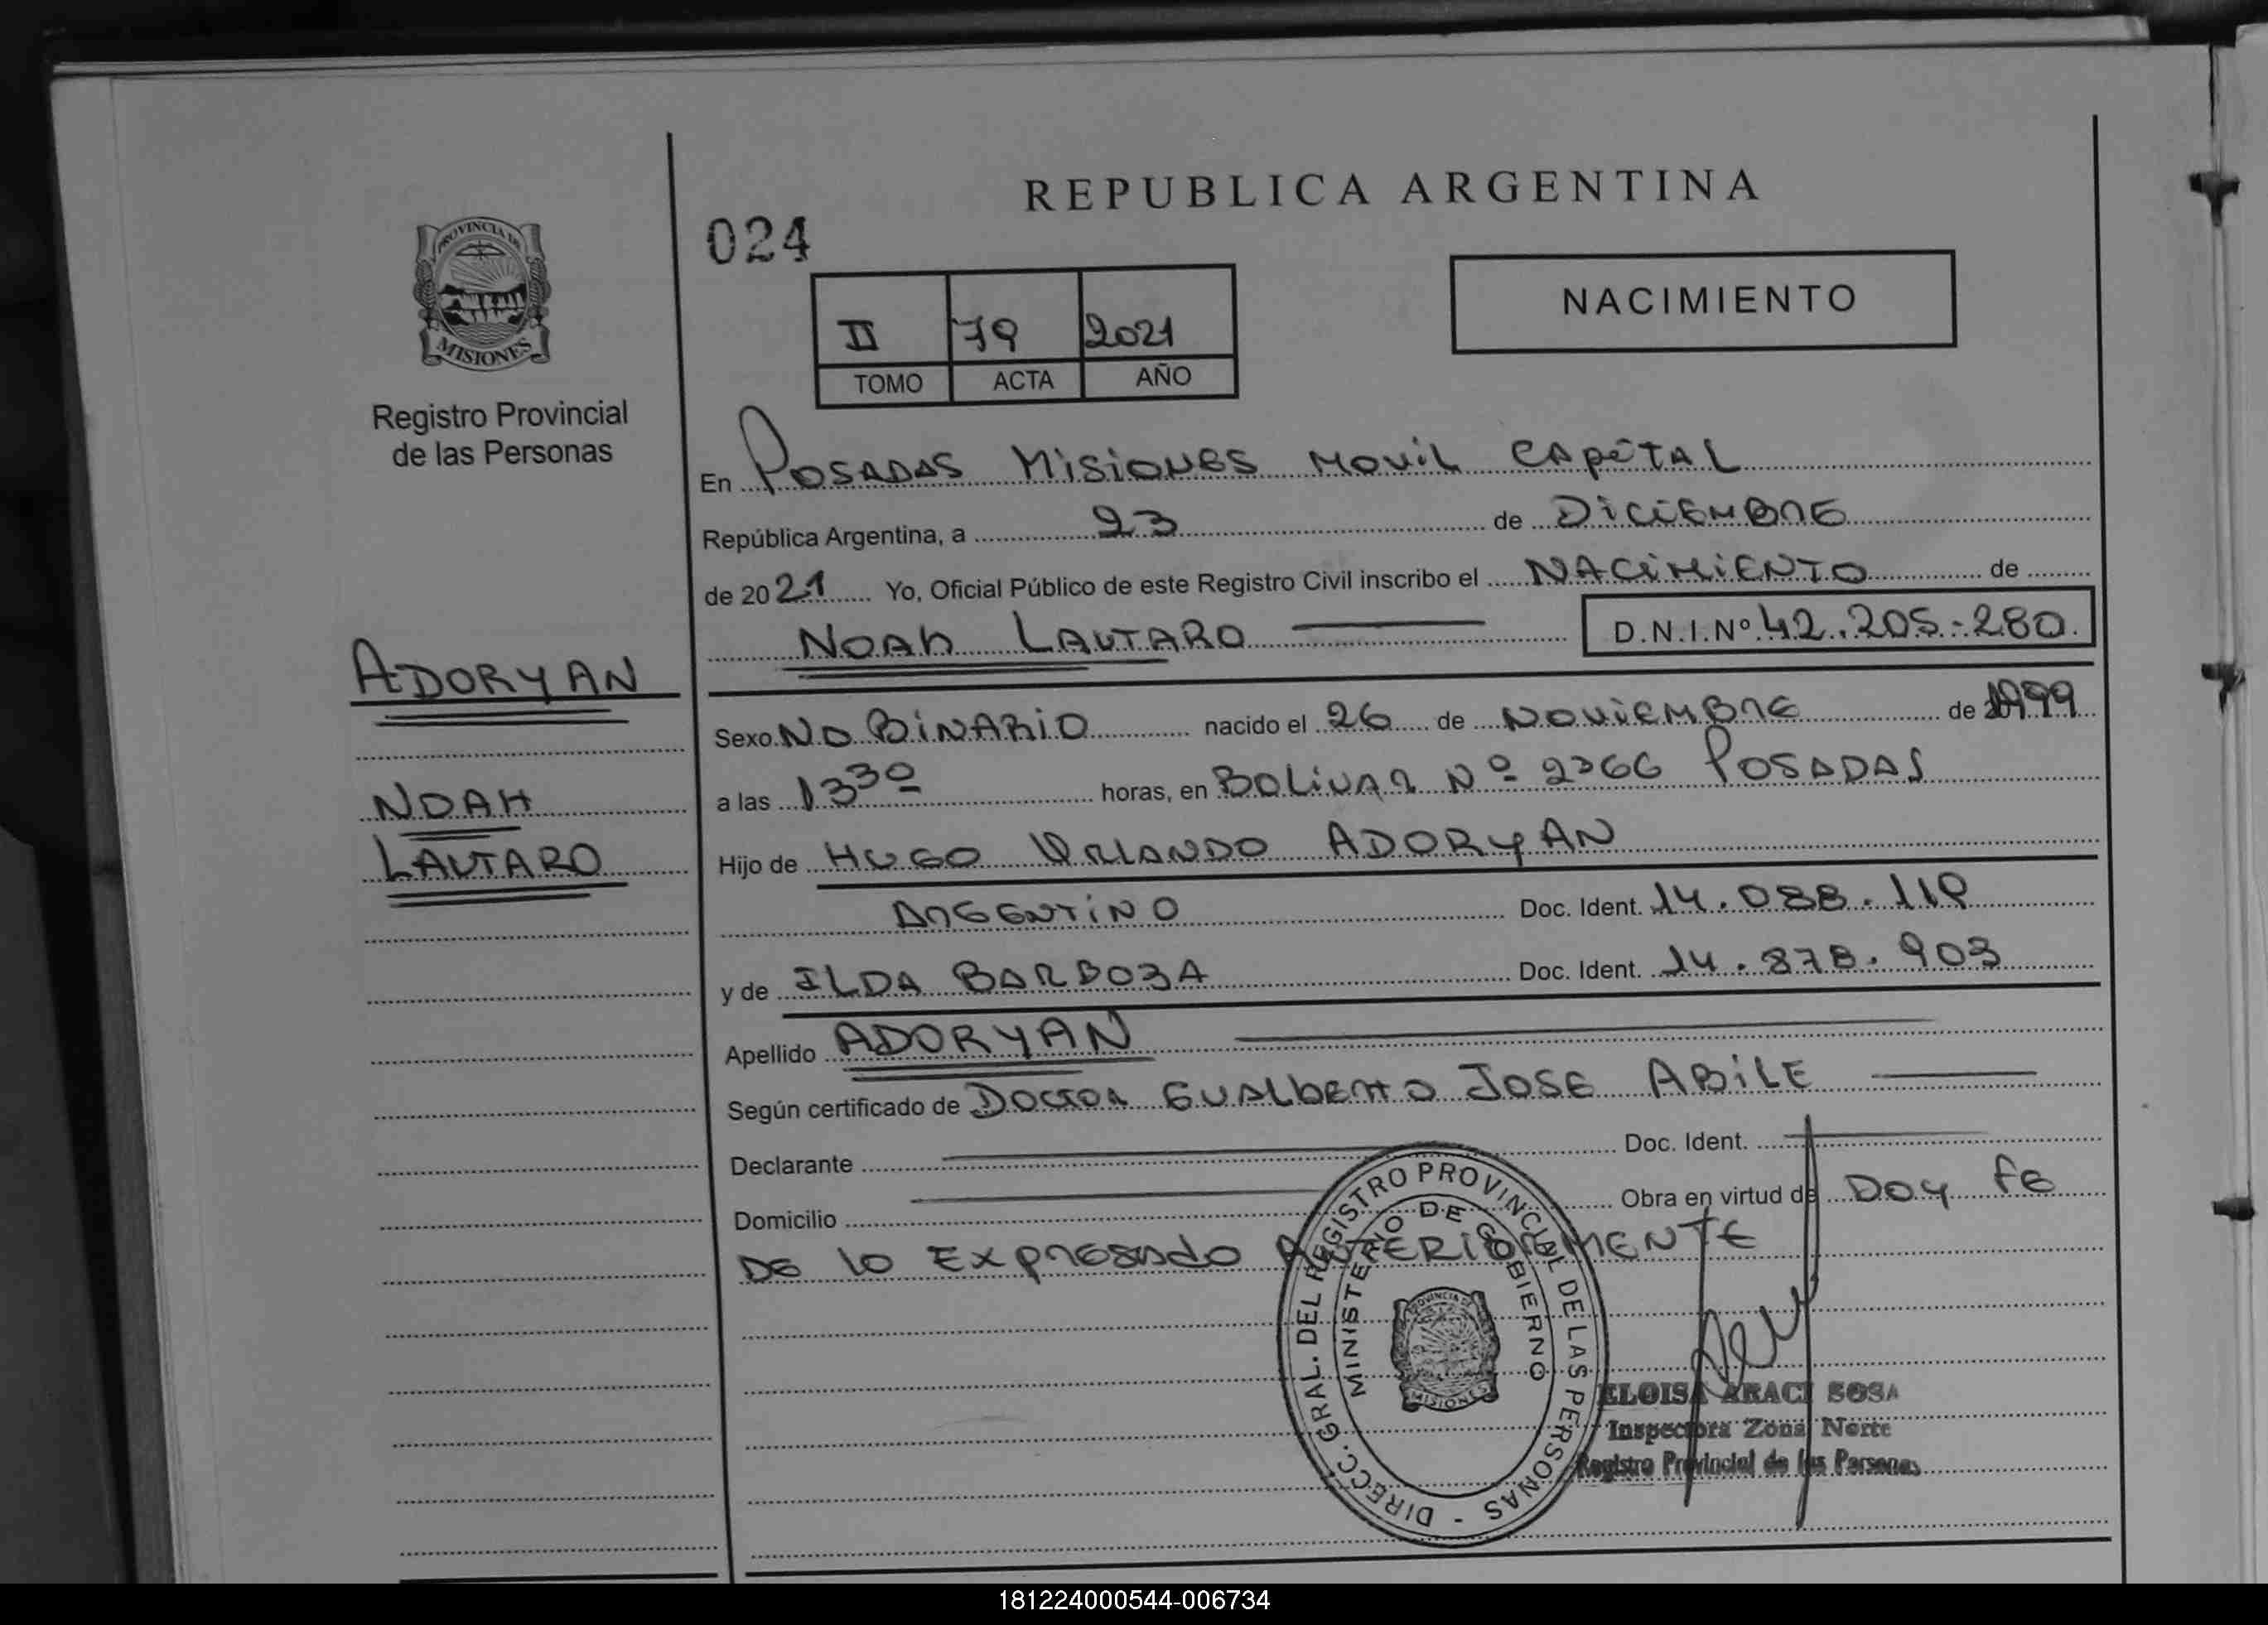 REPUBLICA ARGENTINA
024
NACIMIENTO
II 79 2021
TOMO ACTA AÑO
PROVINCIA DE
MISIONES
Registro Provincial
de las Personas
En POSADAS MISIONES MOVIL CAPITAL
República Argentina, a 23 de DICIEMBRE
de 2021 Yo, Oficial Público de este Registro Civil inscribo el NACIMIENTO de
NOAH LAUTARO D.N.I.Nº 42.205.280
ADORYAN
NOAH
LAUTARO
Sexo NO BINARIO nacido el 26 de NOVIEMBRE de 1999
a las 13 30 horas, en BOLIVAR Nº 2366 POSADAS
Hijo de HUGO ORLANDO ADORYAN
ARGENTINO Doc. Ident. 14.088.119
y de ILDA BARBOZA Doc. Ident. 14.878.903
Apellido ADORYAN
Según certificado de DOCTOR GUALBERTO JOSE ABILE
Declarante Doc. Ident.
Domicilio Obra en virtud de DOY FE
DE LO EXPRESADO ANTERIORMENTE
DIRECC. GRAL. DEL REGISTRO PROVINCIAL DE LAS PERSONAS -
MINISTERIO DE GOBIERNO
PROVINCIA DE
MISIONES
ELOISA ARACI SOSA
Inspectora Zona Norte
Registro Provincial de las Personas
181224000544-006734